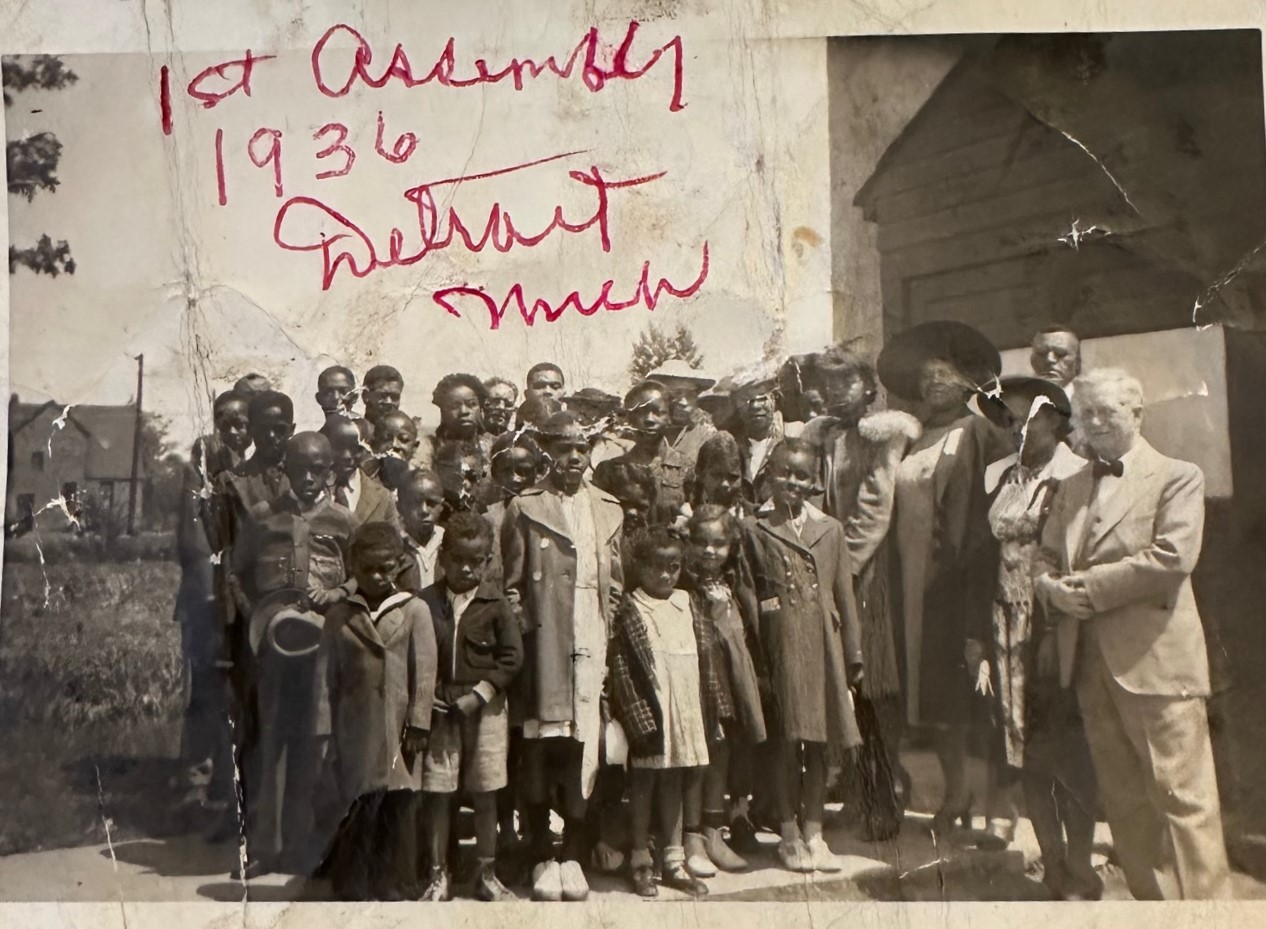 1st Assembly
1936
Detroit
Mich